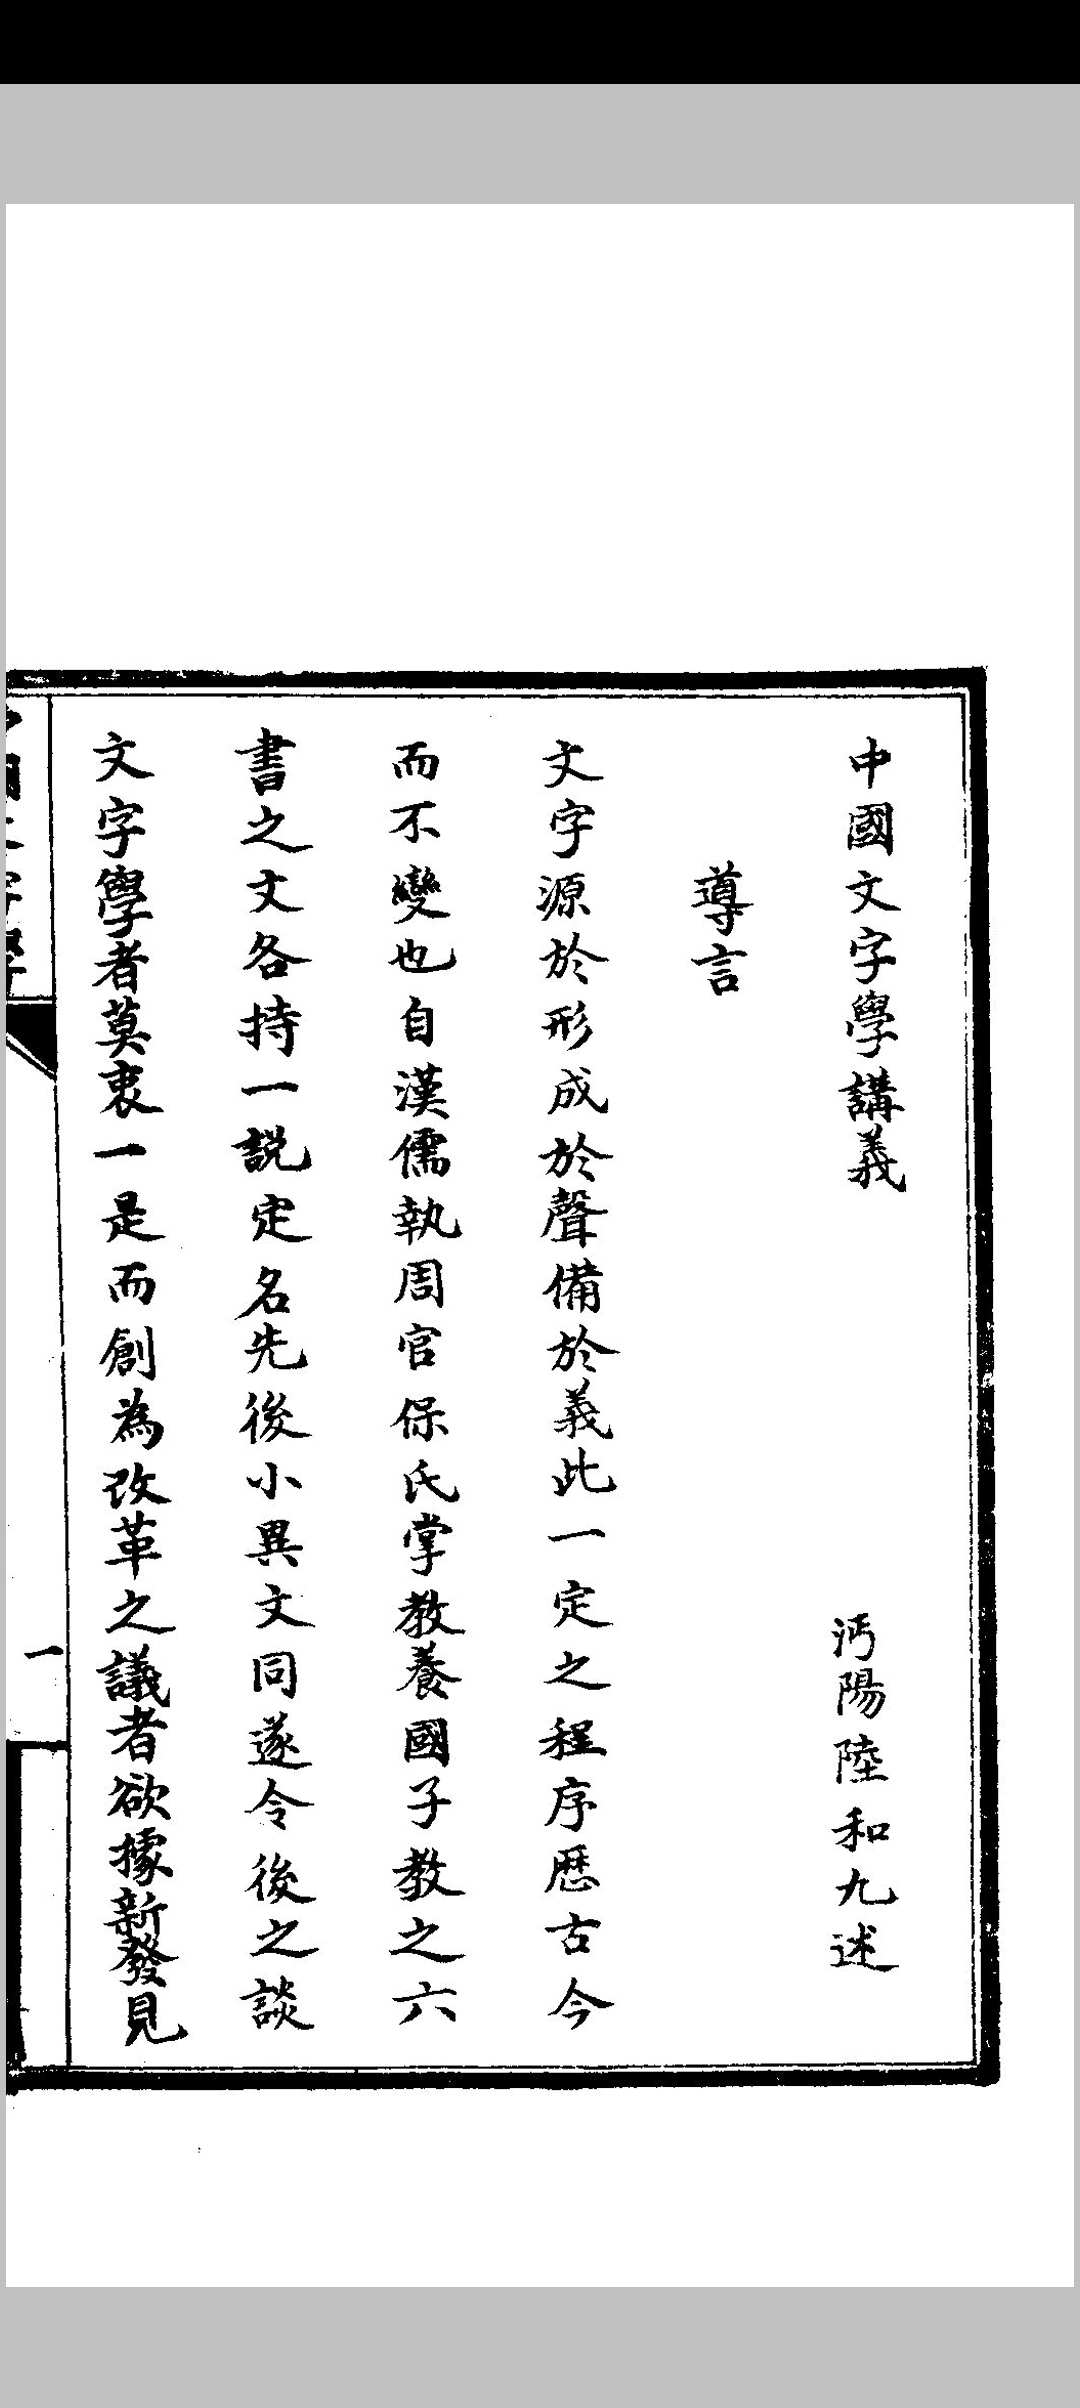 中國文字學講義
沔陽陸和九述
導言
文字源於形成於聲備於義此一定之程序歷古今
而不變也自漢儒執周官保氏掌教養國子教之六
書之文各持一說定名先後小異文同遂令後之談
文字學者莫衷一是而創為改革之議者欲據新發見
一